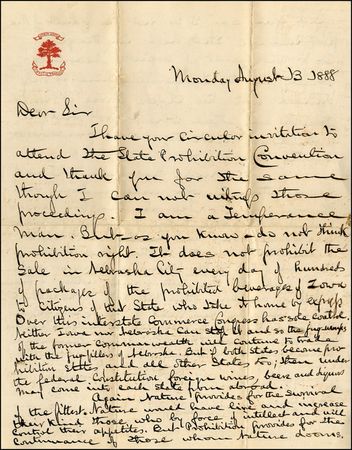 Monday August 13 1888
Dear Sir
I have your circular invitation to
attend the State Prohibition Convention
and thank you for the same
though I can not witness those
proceedings. I am a Temperance
man. But as you know - do not think
prohibition right. It does not prohibit the
sale in Nebraska City every day of hundreds
of packages of the prohibited beverages of Iowa
to citizens of that State who take it home by express
Over this interstate Commerce Congress has sole control.
Neither Iowa nor Nebraska can stop it and so the
of the former Commonwealth will continue to trade
with the of Nebraska. But if both states become pro-
hibition States and all other States to, then under
the federal Constitution foreign wines, beers and liquors
may come into each State from abroad.
Again Nature provides for the survival
of the fittest. Nature would have live and increase
their kind those who by force of intellect and will
control their appetites. But Prohibition provides for the
continuance of those whom Nature dooms.